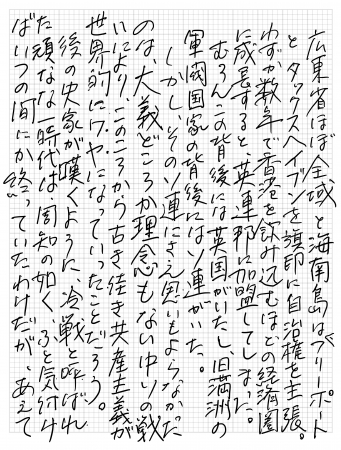 広東省ほぼ全域と海南島はフリーポート
とタックスヘイブンを旗印に自治権を主張。
わずか数年で香港を飲み込むほどの経済圏
に成長すると、英連邦に加盟してしまった。
むろんこの背後には英国がいたし、旧満洲の
軍閥国家の背後にはソ連がいた。
しかし、そのソ連にさえ思いもよらなかった
のは、大義どころか理念もない中りの戦
いにより、このころから古き佳き共産主義が
世界的にワヤになっていったことだろう。
後の史家が嘆くように、冷戦と呼ばれ
た頑なな一時代は、周知の如く、ふと気付け
ばいつの間にか終っていたわけだが、あえて